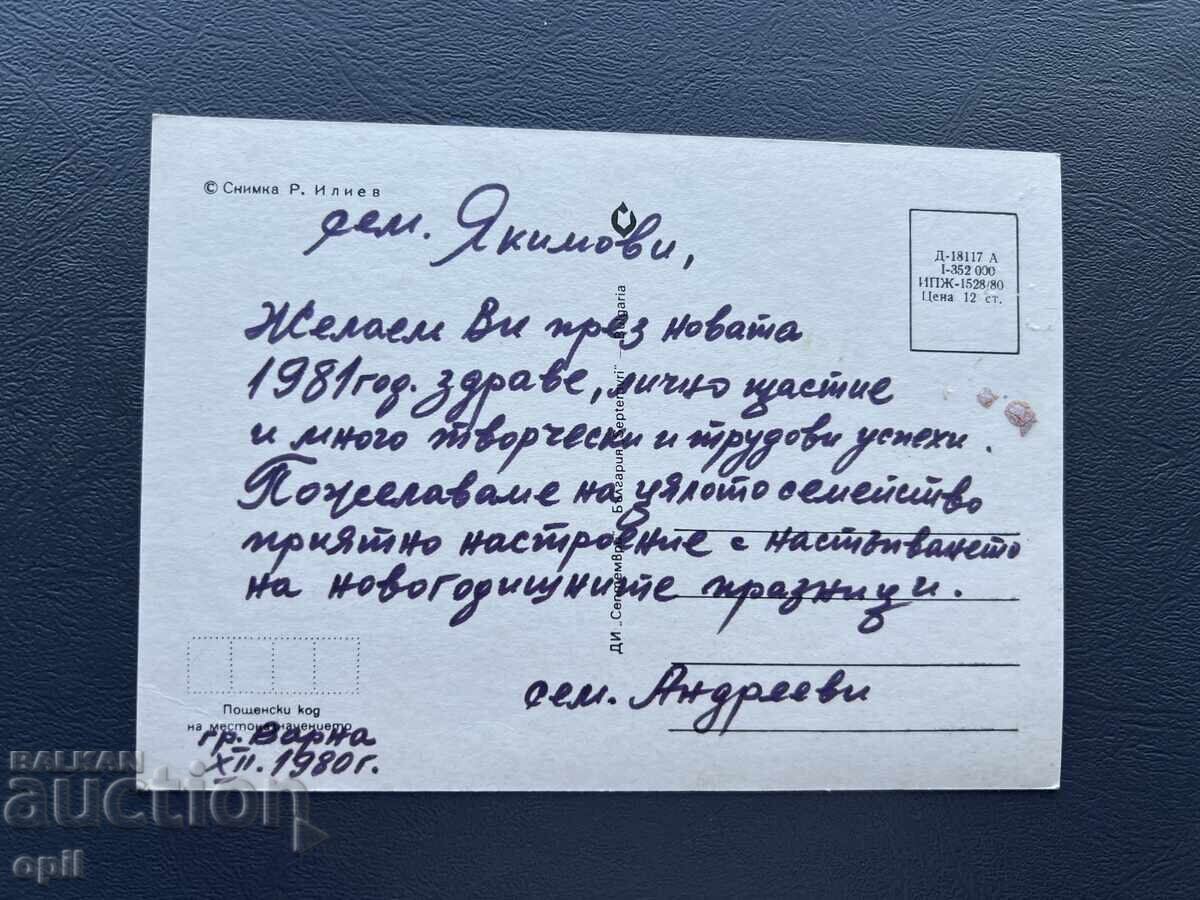 © Снимка Р. Илиев
сем. Якимови,
Желаем Ви през новата
1981 год. здраве, лично щастие
и много творчески и трудови успехи.
Пожелаваме на цялото семейство
приятно настроение с настъпването
на новогодишните празници.
сем. Андрееви
гр. Варна
XII. 1980 г.
Д-18117 А
I-352 000
ИПЖ-1528/80
Цена 12 ст.
ДИ „Септември" — България „Septemvri" — Bulgaria
Пощенски код
на местоназначението
BALKAN
auction
opil